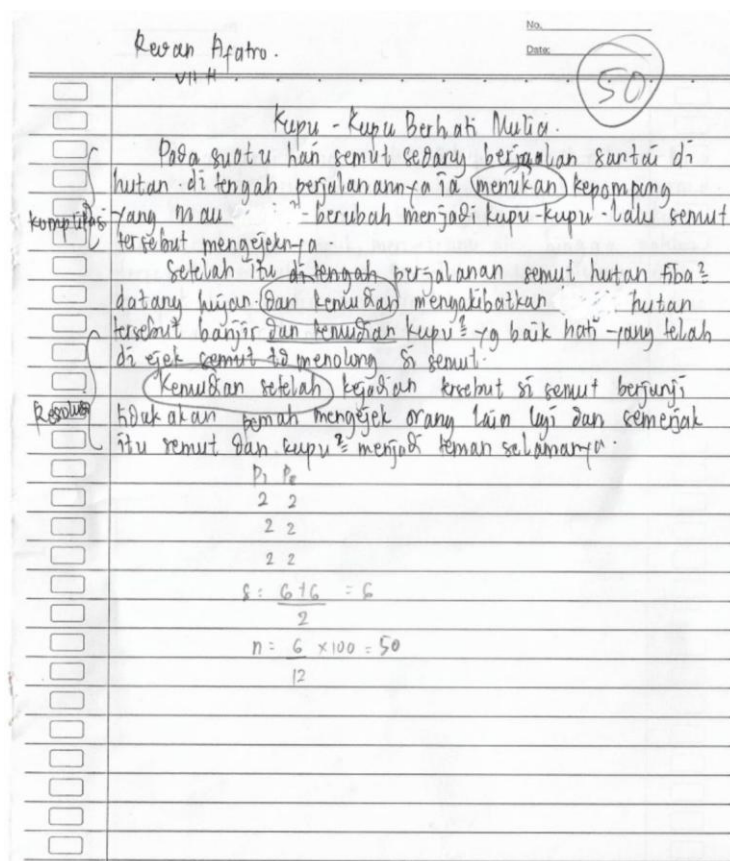 No.
Revan Afatro.
Date:
VII H
50
Kupu - Kupu Berhati Mulia.
Pada suatu hari semut sedang berjalan santai di
hutan. di tengah perjalanannya ia menukan kepompong
komplikasi yang mau berubah menjadi kupu-kupu. lalu semut
tersebut mengejeknya.
Setelah itu di tengah perjalanan semut hutan tiba²
datang hujan. dan kemudian mengakibatkan hutan
tersebut banjir dan kemudian kupu² yg baik hati yang telah
di ejek semut td menolong si semut.
Kemudian setelah kejadian tersebut si semut berjunji
Resolusi tidak akan pernah mengejek orang lain lagi dan semenjak
itu semut dan kupu² menjadi teman selamanya.
P1 P2
2 2
2 2
2 2
S: 6+6 = 6
2
n = 6 x100 = 50
12